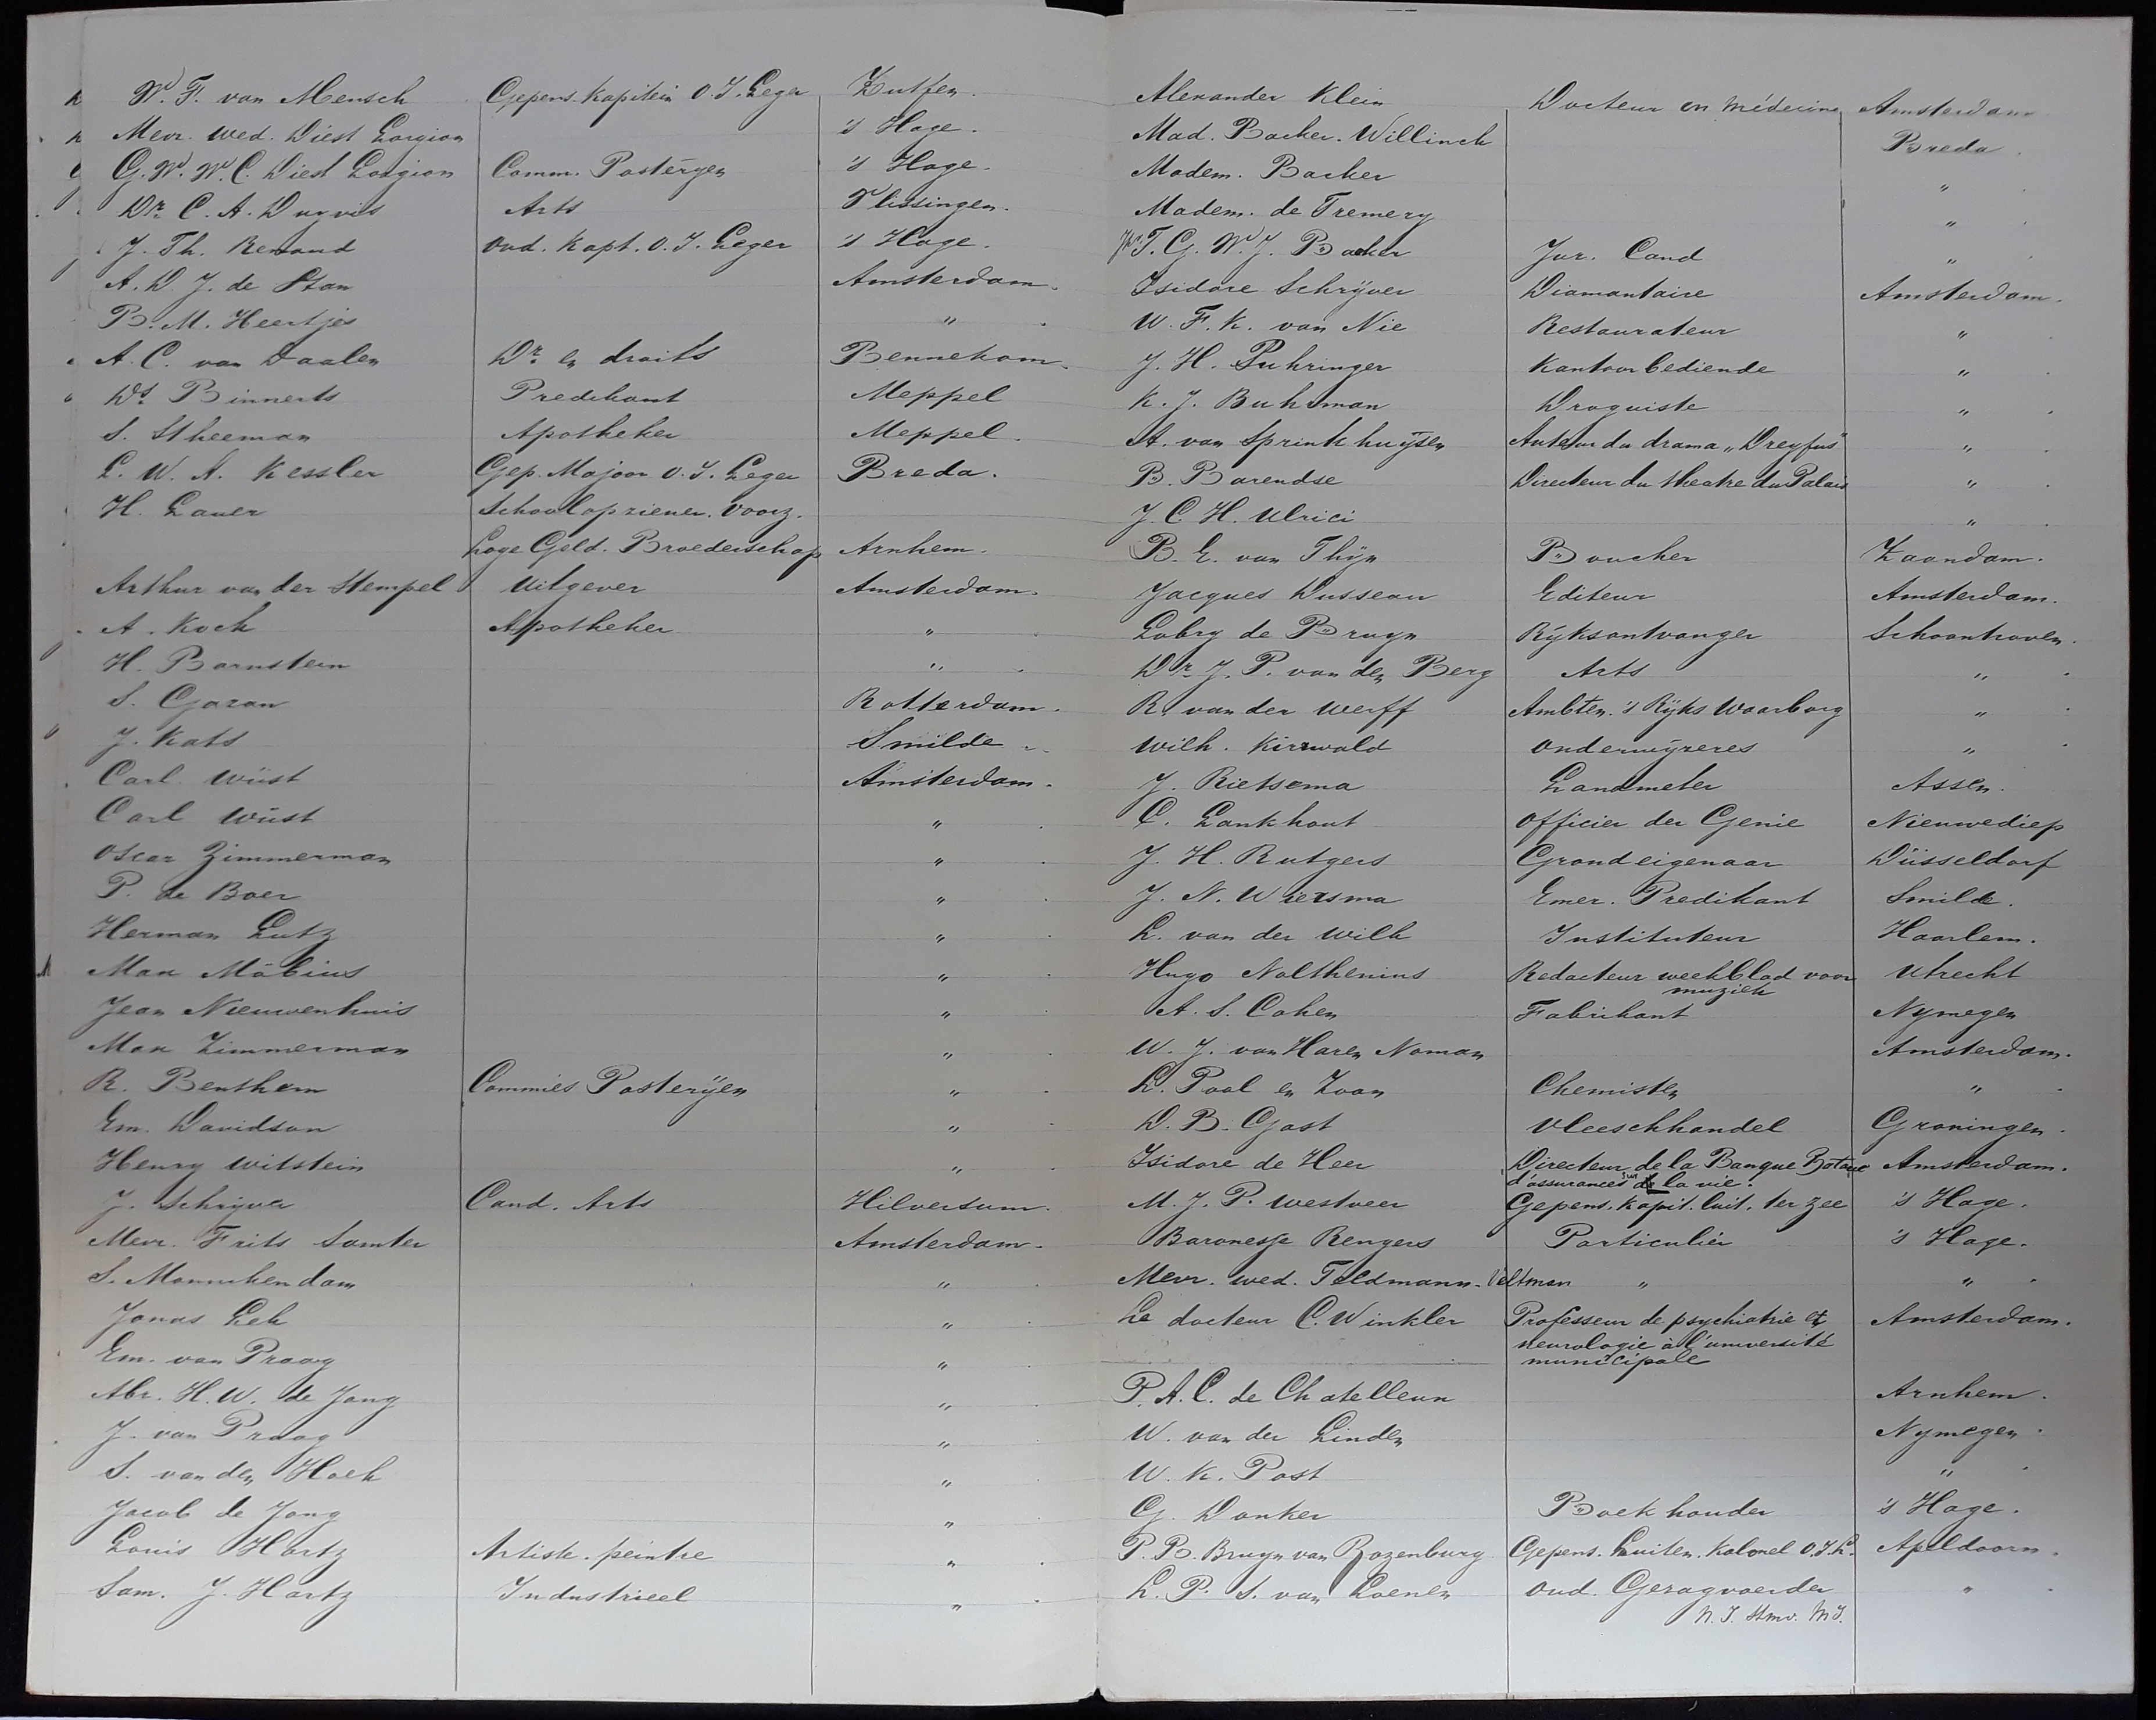 W. F. van Mensch Gepens. Kapitein O. I. Leger Zutfen.
Mevr. wed. Diest Lorgion 's Hage.
G. W. W. C. Diest Lorgion Comm. Posterÿen 's Hage.
Dr. C. A. Duyvis Arts Vlissingen.
J. Th. Renaud Oud. Kapt. O. I. Leger 's Hage.
A. D. J. de Stan Amsterdam.
B. M. Heertjes "
A. C. van Daalen Dr. en droits Bennekom.
Ds. Binnerts Predikant Meppel
S. Stheeman Apotheker Meppel.
L. W. A. Kessler Gep. Majoor O. I. Leger Breda.
H. Lauer Schoolopziener. Voorz.
Loge Geld. Broederschap Arnhem.
Arthur van der Stempel Uitgever Amsterdam.
A. Koch Apotheker "
H. Barnstein "
S. Garan Rotterdam.
J. Kats Smilde
Carl Wüst Amsterdam.
Carl Wüst "
Oscar Zimmerman "
P. de Boer "
Herman Lutz "
Max Möbius "
Jean Nieuwenhuis "
Max Zimmerman "
R. Benthem Commies Posterÿen "
Em. Davidson "
Henry Witstein "
J. Schrijver Cand. Arts Hilversum.
Mevr. Frits Samter Amsterdam.
S. Monnikendam "
Jonas Lek "
Em. van Praag "
Abr. H. W. de Jong "
J. van Praag "
S. van den Hoek "
Jacob de Jong "
Louis Hartz Artiste. peintre "
Sam. J. Hartz Industrieel "
Alexander Klein Docteur en médecine Amsterdam
Mad. Backer. Willinck Breda.
Madem. Backer "
Madem. de Tremery "
Jhr. T. G. W. J. Backer Jur. Cand "
Isidore Schrÿver Diamantaire Amsterdam.
W. F. K. van Nie Restaurateur "
J. H. Puhringer Kantoorbediende "
K. J. Buhrman Droguiste "
A. van Sprinkhuÿsen Auteur du drama „Dreyfus" "
B. Barendse Directeur du theatre du Palais "
J. C. H. Ulrici "
B. E. van Thÿn Boucher Zaandam.
Jacques Dusseau Editeur Amsterdam.
Lobry de Bruyn Rÿksontvanger Schoonhoven.
Dr. J. P. van den Berg Arts "
R. van der Werff Ambten. 's Rÿks Waarborg "
Wilh. Kirrwald Onderwÿzeres "
J. Rietsema Landmeter Assen.
C. Lankhout Officier der Genie Nieuwediep
J. H. Rutgers Grondeigenaar Düsseldorf
J. N. Wiersma Emer. Predikant Smilde.
L. van der Wilk Instituteur Haarlem.
Hugo Nolthenius Redacteur weekblad voor Utrecht
muziek
A. S. Cohen Fabrikant Nymegen
W. J. van Haren Noman Amsterdam.
L. Pool en Zoon Chemisten "
D. B. Gast Vleeschhandel Groningen.
Isidore de Heer Directeur de la Banque Amsterdam.
d'assurances sur la vie.
M. J. P. Westveer Gepens. Kapit. luit. ter zee 's Hage.
Baronesse Rengers Particulièr 's Hage.
Mevr. wed. Feldmann-Veltman " "
Le docteur C. Winkler Professeur de psychiatrie et Amsterdam.
neurologie à l'université
municipale
P. A. C. de Chatelleux Arnhem.
W. van der Linden Nymegen.
W. K. Post "
G. Donker Boekhouder 's Hage.
P. B. Bruyn van Rozenburg Gepens. Luiten. Kolonel O. I. L. Apeldoorn.
L. P. S. van Loenen Oud. Gezagvoerder "
N. I. Stmv. Mÿ.